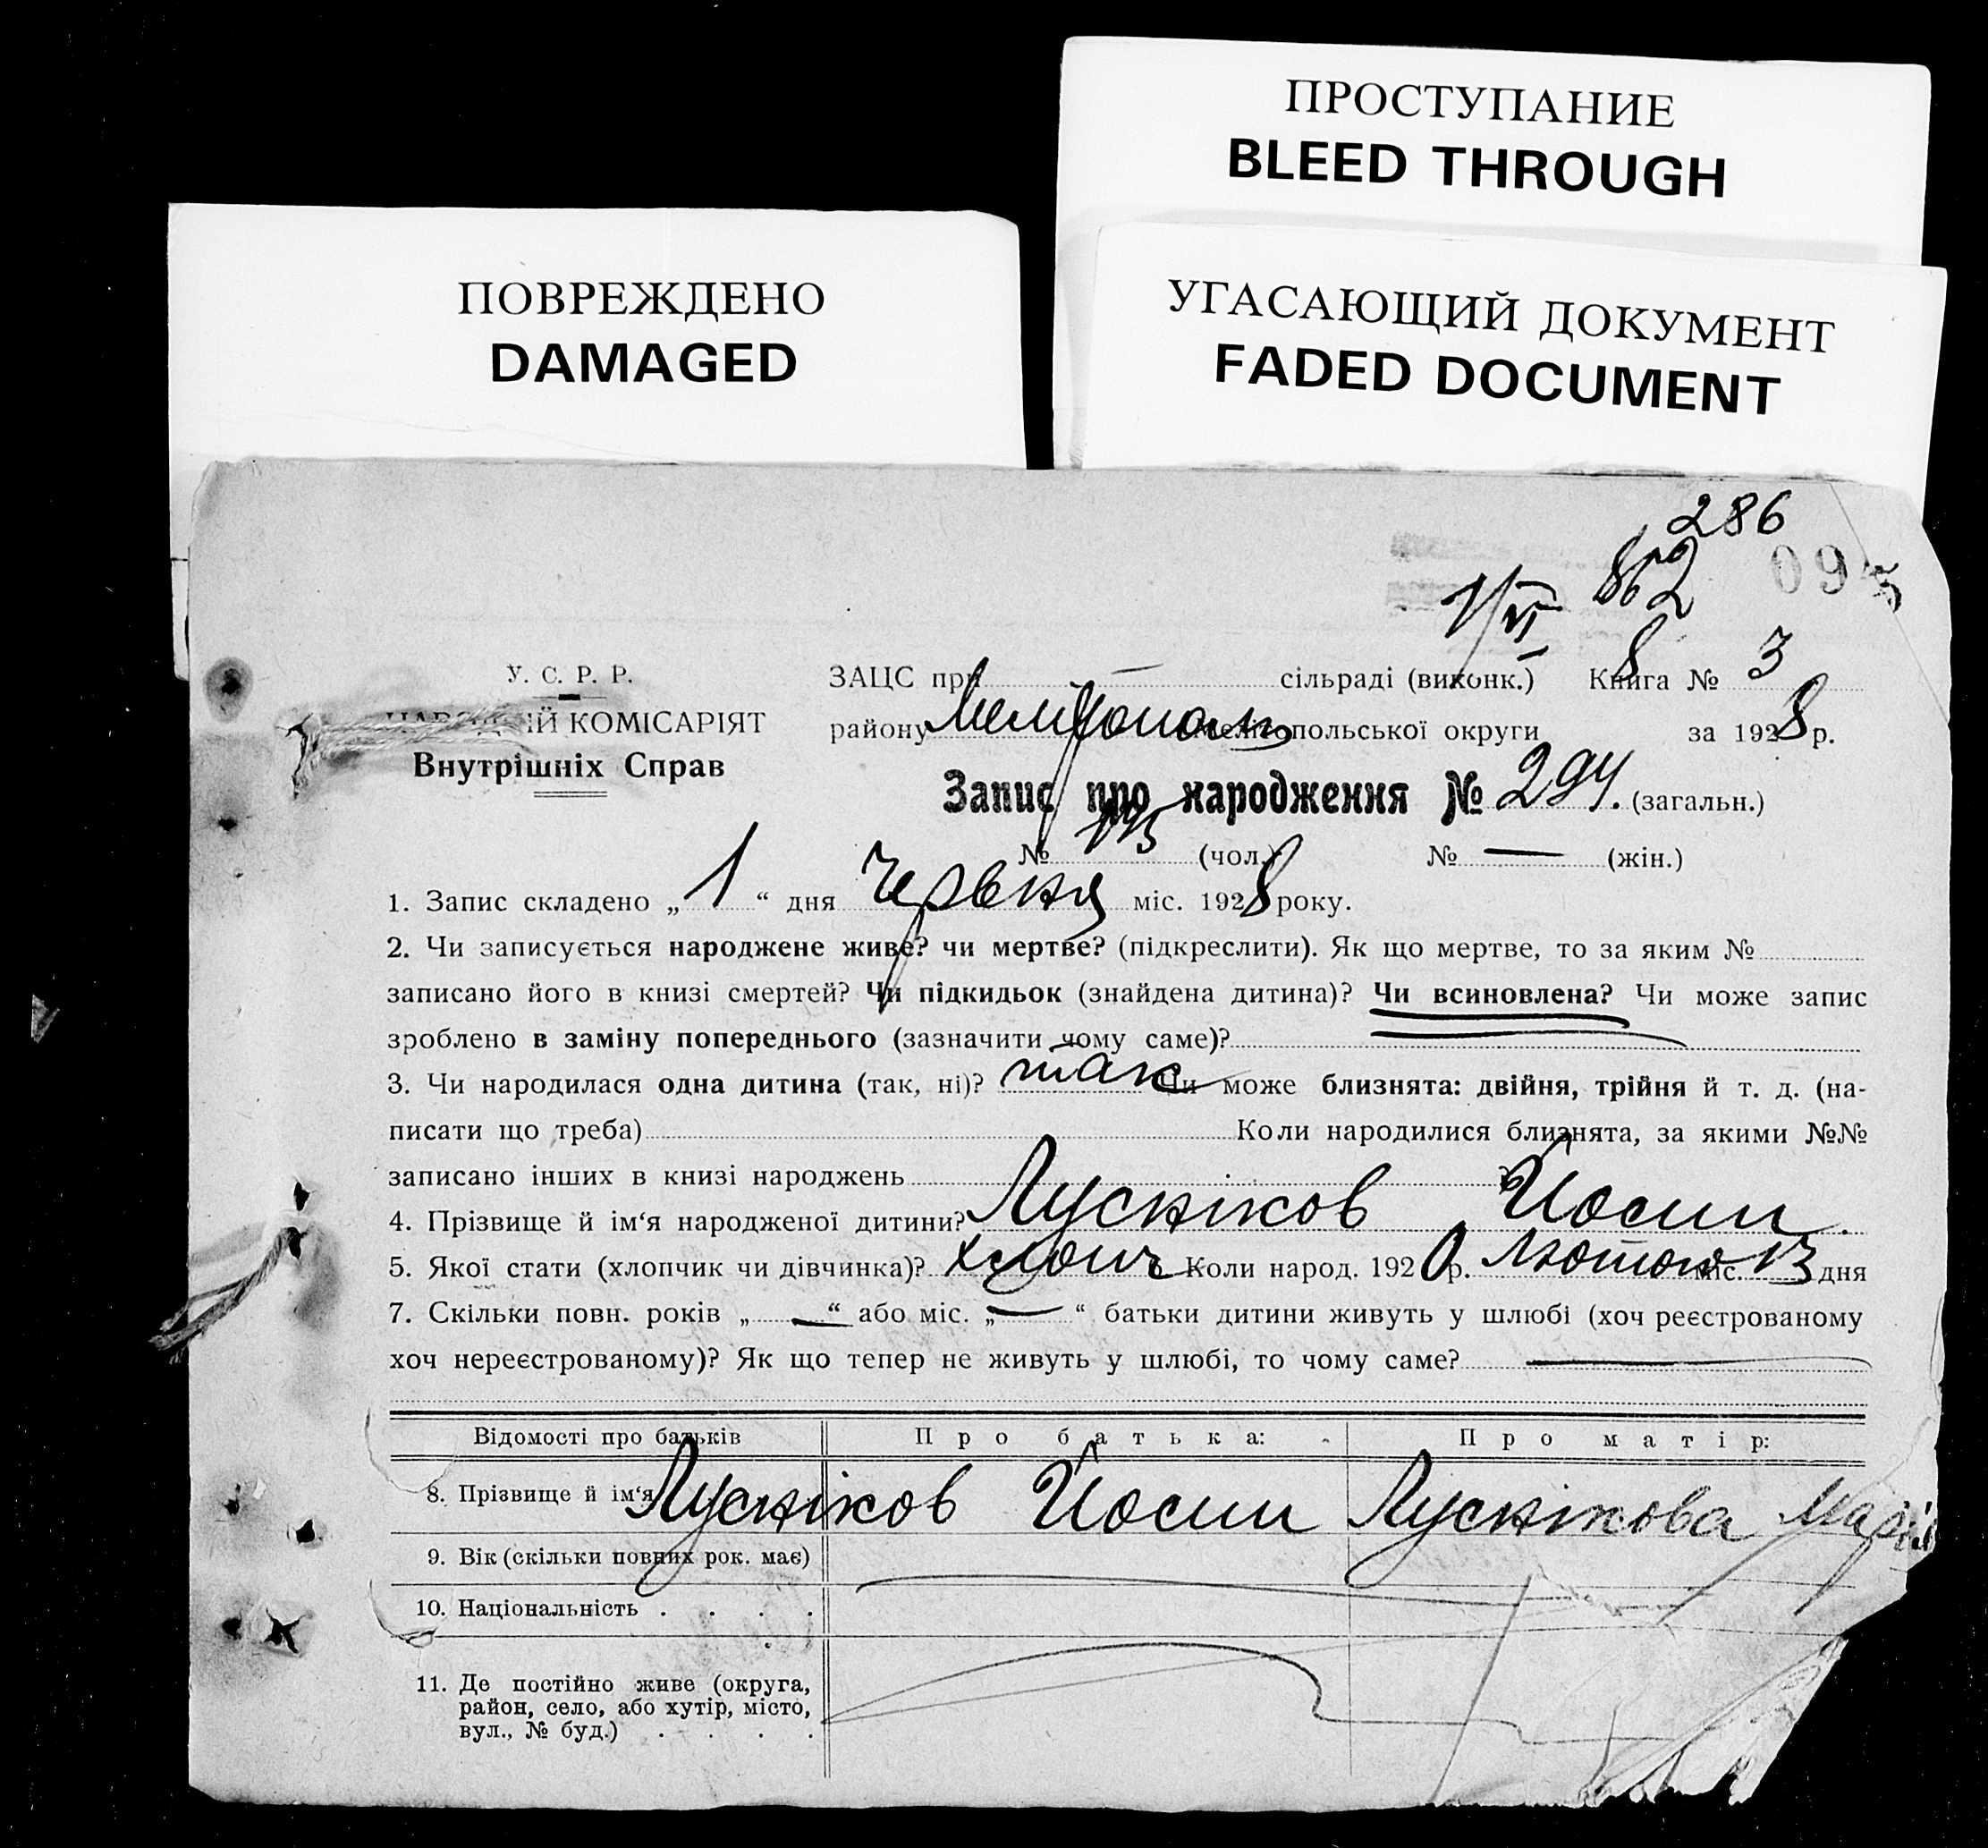 ПРОСТУПАНИЕ
BLEED THROUGH
ПОВРЕЖДЕНО
DAMAGED
УГАСАЮЩИЙ ДОКУМЕНТ
FADED DOCUMENT
286
862 095
1/VI 8
У. С. Р. Р.
НАРОДНІЙ КОМІСАРІЯТ
Внутрішніх Справ
ЗАЦС при — сільраді (виконк.) Книга № 3
району Мелітополь Мелітопольської округи за 1928 р.
Запис про народження № 294. (загальн.)
№ 175 (чол.) № — (жін.)
1. Запис складено „ 1 “ дня Червня міс. 1928 року.
2. Чи записується народжене живе? чи мертве? (підкреслити). Як що мертве, то за яким №
записано його в книзі смертей? Чи підкидьок (знайдена дитина)? Чи всиновлена? Чи може запис
зроблено в заміну попереднього (зазначити чому саме)?
3. Чи народилася одна дитина (так, ні)? так Чи може близнята: двійня, трійня й т. д. (на-
писати що треба) Коли народилися близнята, за якими №№
записано інших в книзі народжень
4. Прізвище й ім‘я народженої дитини? Лусніков Йосип.
5. Якої стати (хлопчик чи дівчинка)? хлопч 6 Коли народ. 1920 р. Лютого міс. 13 дня
7. Скільки повн. років „ — “ або міс. „ — “ батьки дитини живуть у шлюбі (хоч реєстрованому
хоч нереєстрованому)? Як що тепер не живуть у шлюбі, то чому саме? —
Відомості про батьків Про батька: Про матір:
8. Прізвище й ім‘я Лусніков Йосип Луснікова Марія
9. Вік (скільки повних рок. має)
10. Національність . . . .
11. Де постійно живе (округа,
район, село, або хутір, місто,
вул., № буд.) . . . .